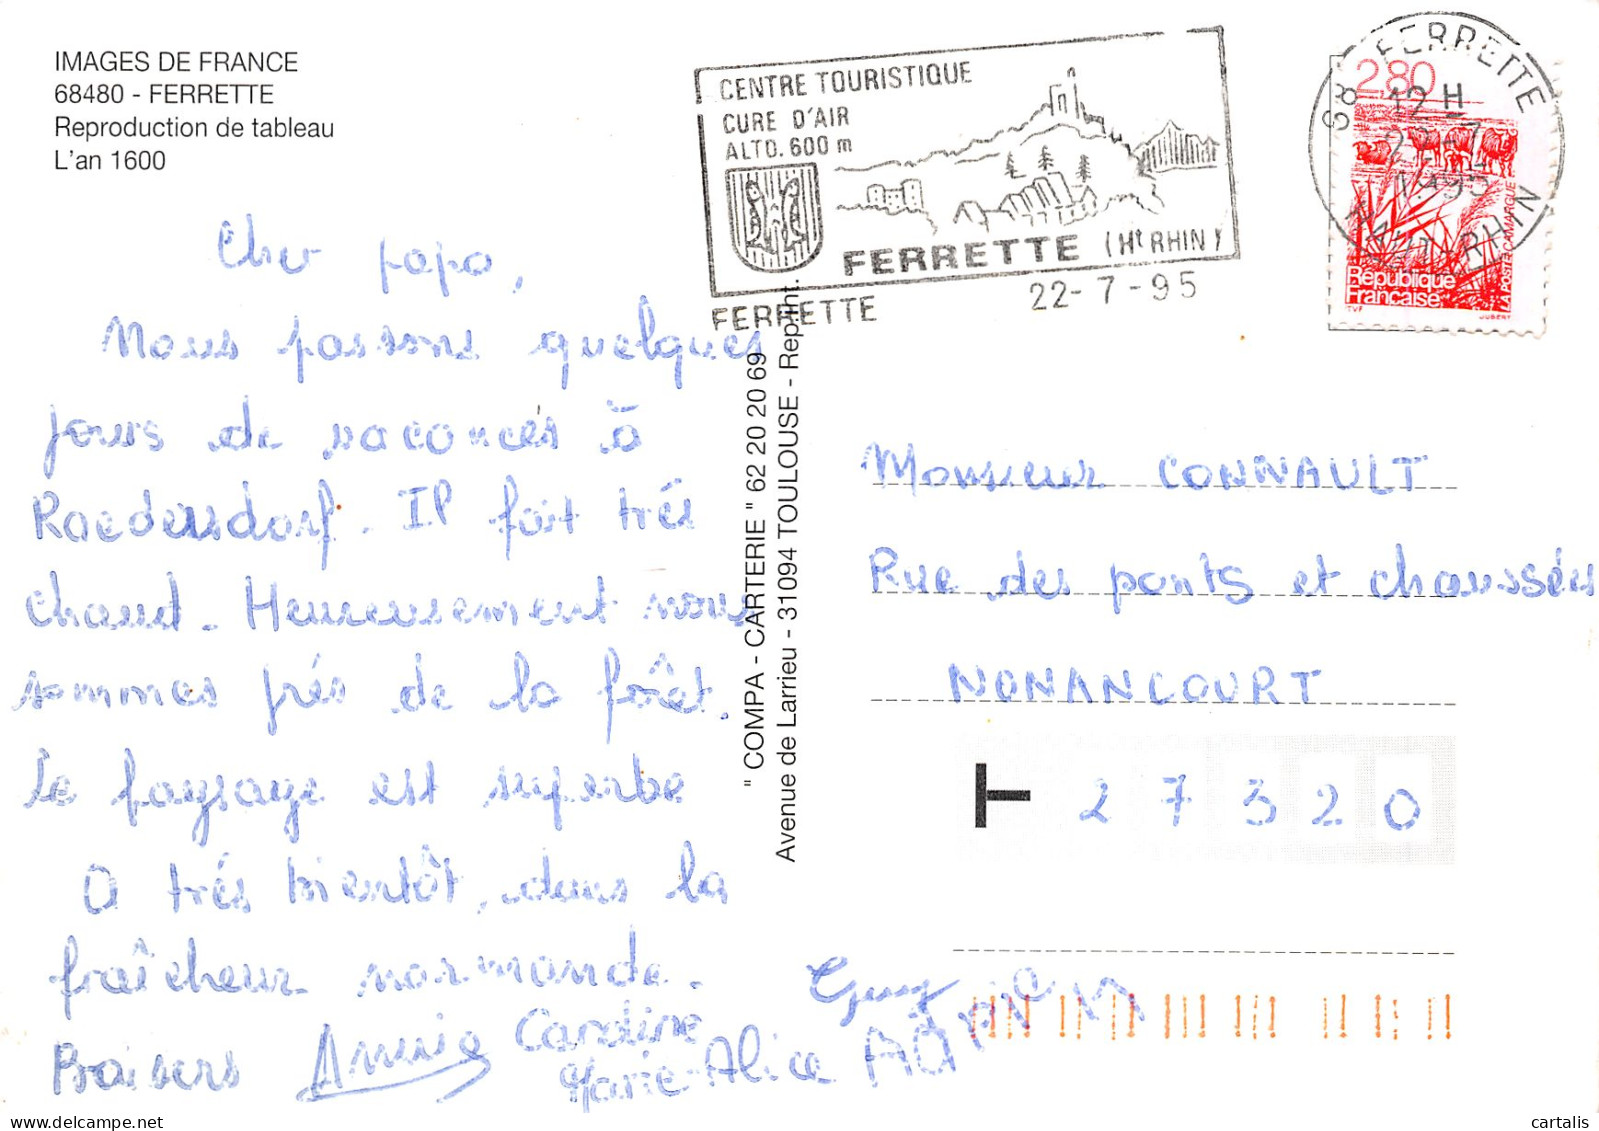 IMAGES DE FRANCE
68480 - FERRETTE
Reproduction de tableau
L'an 1600
Cher papa,
Nous passons quelques
jours de vacances à
Roedersdorf. Il fait très
chaud. Heureusement nous
sommes près de la forêt.
Le paysage est superbe
A très bientôt, dans la
fraîcheur normande.
Baisers Annie Caroline
Marie-Alice
Guy
" COMPA - CARTERIE " 62 20 20 69
Avenue de Larrieu - 31094 TOULOUSE - Rep. Int.
CENTRE TOURISTIQUE
CURE D'AIR
ALTD. 600 m
FERRETTE (Ht RHIN)
FERRETTE 22-7-95
68 FERRETTE
12 H
22-7
1995
HAUT RHIN
2,80
République
Française
LA POSTE CAMARGUE
TVF JUBERT
Monsieur CONNAULT
Rue des ponts et chaussées
NONANCOURT
27320
cartalis